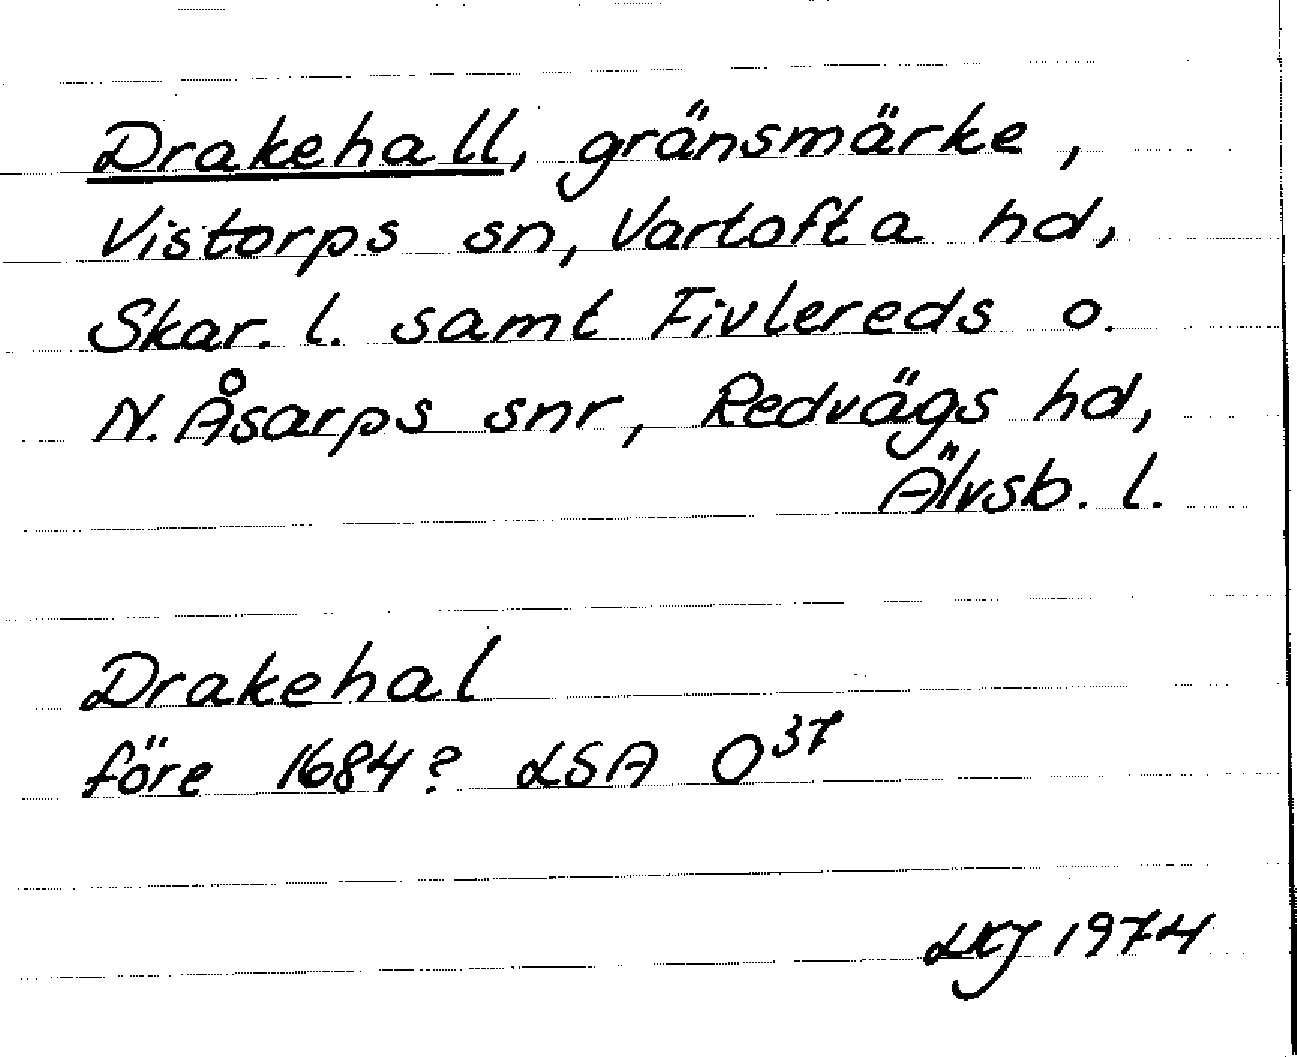 Drakehall, gränsmärke,
Vistorps sn, Vartofta hd,
Skar. l. samt Fivlereds o.
N. Åsarps snr, Redvägs hd,
Älvsb. l.
Drakehal
före 1684? LSA O37
LKJ 1974